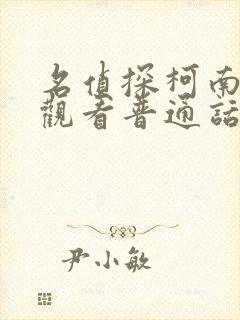 名偵探柯南
觀看普通話
尹小敏